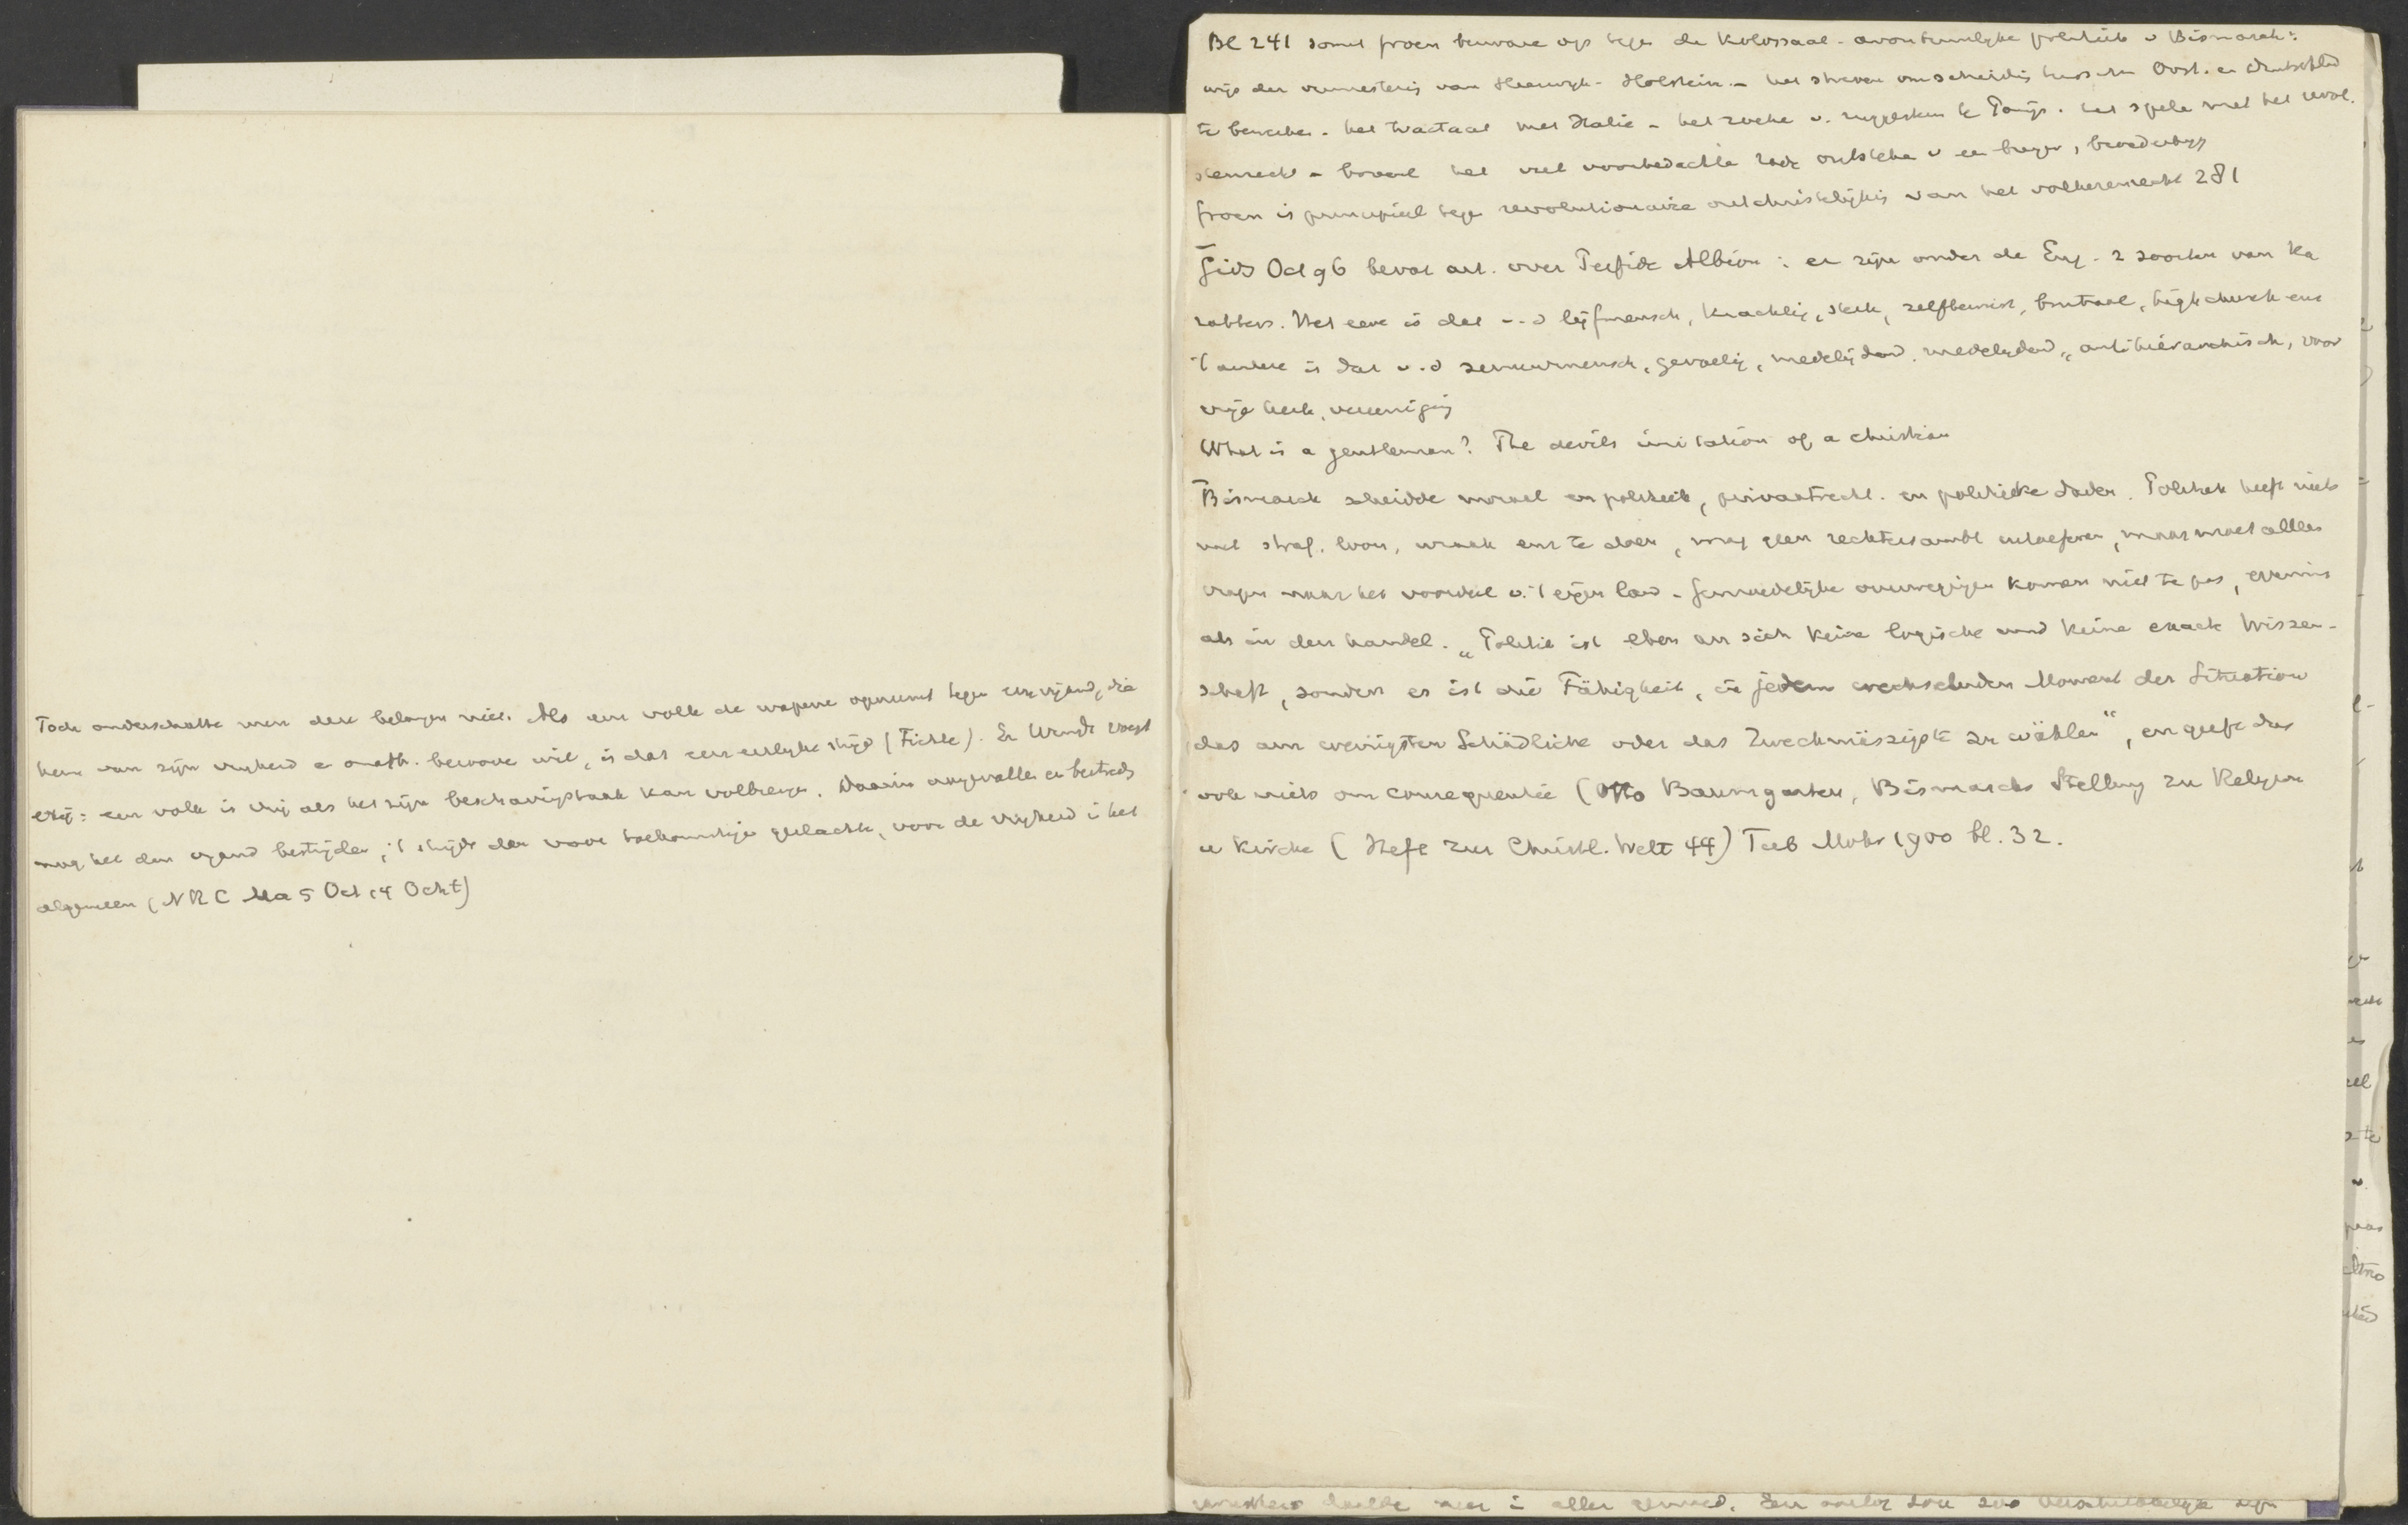 Toch onderschatte men deze belangen niet. Als een volk de wapene opneemt tegen een vijand, die
hem van zijn vrijheid e onafh. berooven wil, is dat een eerlijke strijd (Fichte). En Wundt voegt
erbij: een volk is vrij als het zijn beschavingstaak kan volbrengen. Daarin aangevallen en bestreden
mag het den vijand bestrijden; 't strijdt dan voor toekomstige geslachte, voor de vrijheid i het
algemeen (NRC Ma 5 Oct 14 Ocht)
Bl 241 somt Groen bezwaren op tege de Kolossaal-avontuurlijke politiek v Bismarck:
wijze der vermeestering van Sleeswijk-Holstein - het streven om scheiding tusschen Oost. en Duitschland
te bewerken - het tractaat met Italië - het zoeke v. ruggesteun te Parijs. het spele met het revol.
stemrecht - bovenal het met voorbedachte rade ontsteken v een burger, broederkrijg
Groen is principieel tege revolutionaire ontchristelijking van het volkerenrecht 281
Gids Oct 96 bevat art. over Perfide Albion: er zijn onder de Eng. 2 soorten van Ka
rakters. Het eene is dat v. d lijfmensch, krachtig, sterk, zelfbewust, brutaal, highchurch enz
't andere is dat v. d zenuwmensch, gevoelig, medelijdend, medelijdend, antihiërarchisch, voor
vrije kerk, vereeniging
What is a gentleman? The devils imitation of a christian
Bismarck scheidde moraal en politiek, privaatrecht. en politieke daden. Politiek heeft niets
met straf, loon, wraak enz te doen, mag geen rechtersambt uitoefenen, maar moet alleen
vragen naar het voordeel v. 't eigen land - Gemoedelijke overwegingen komen niet te pas, evenmin
als in den handel. „Politik ist eben an sich keine logische und keine exacte Wissen-
schaft, sondern es ist die Fähigkeit, in jedem wechselnden Moment der Situation
das am wenigsten Schädliche oder das Zweckmässigste zu wählen“, en geeft dus
ook niets om consequentie (Otto Baumgarten, Bismarcks Stellung zu Religion
u Kirche (Hefte zur Christl. Welt 44) Tub Mohr 1900 bl. 32.
daalde neer i aller gemoed. Een oorlog zou zoo